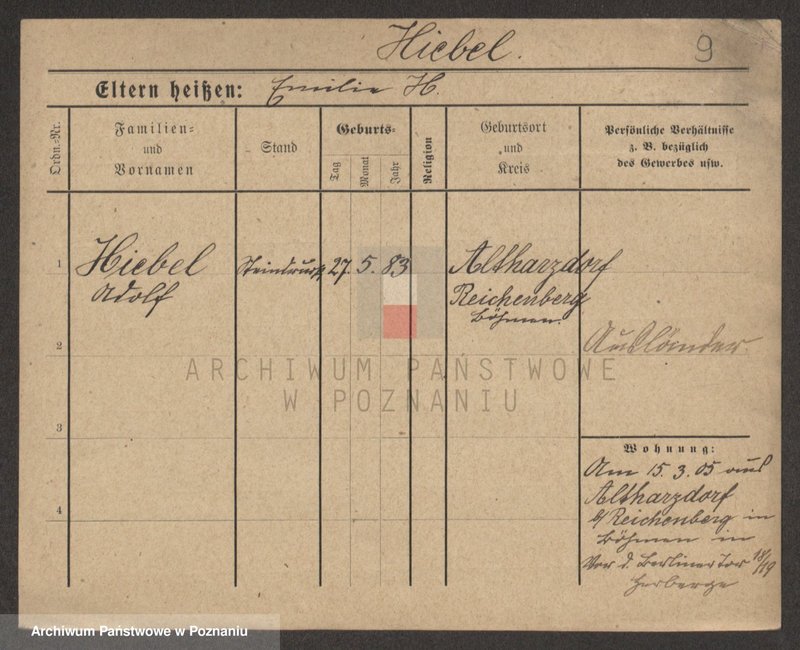 Hiebel.
9
Eltern heißen: Emilie H.
Ordn.-Nr.
Familien-
und
Vornamen
Stand
Geburts-
Tag
Monat
Jahr
Religion
Geburtsort
und
Kreis
Persönliche Verhältnisse
z. B. bezüglich
des Gewerbes usw.
1
Hiebel
Adolf
27. 5. 83
Altharzdorf
Reichenberg
Böhmen.
2
Ausländer.
3
4
Wohnung:
Am 15. 3. 05 aus
Altharzdorf
b/ Reichenberg in
Böhmen in
Vor d. Berliner Tor 18/19
Herberge
ARCHIWUM PAŃSTWOWE
W POZNANIU
Archiwum Państwowe w Poznaniu